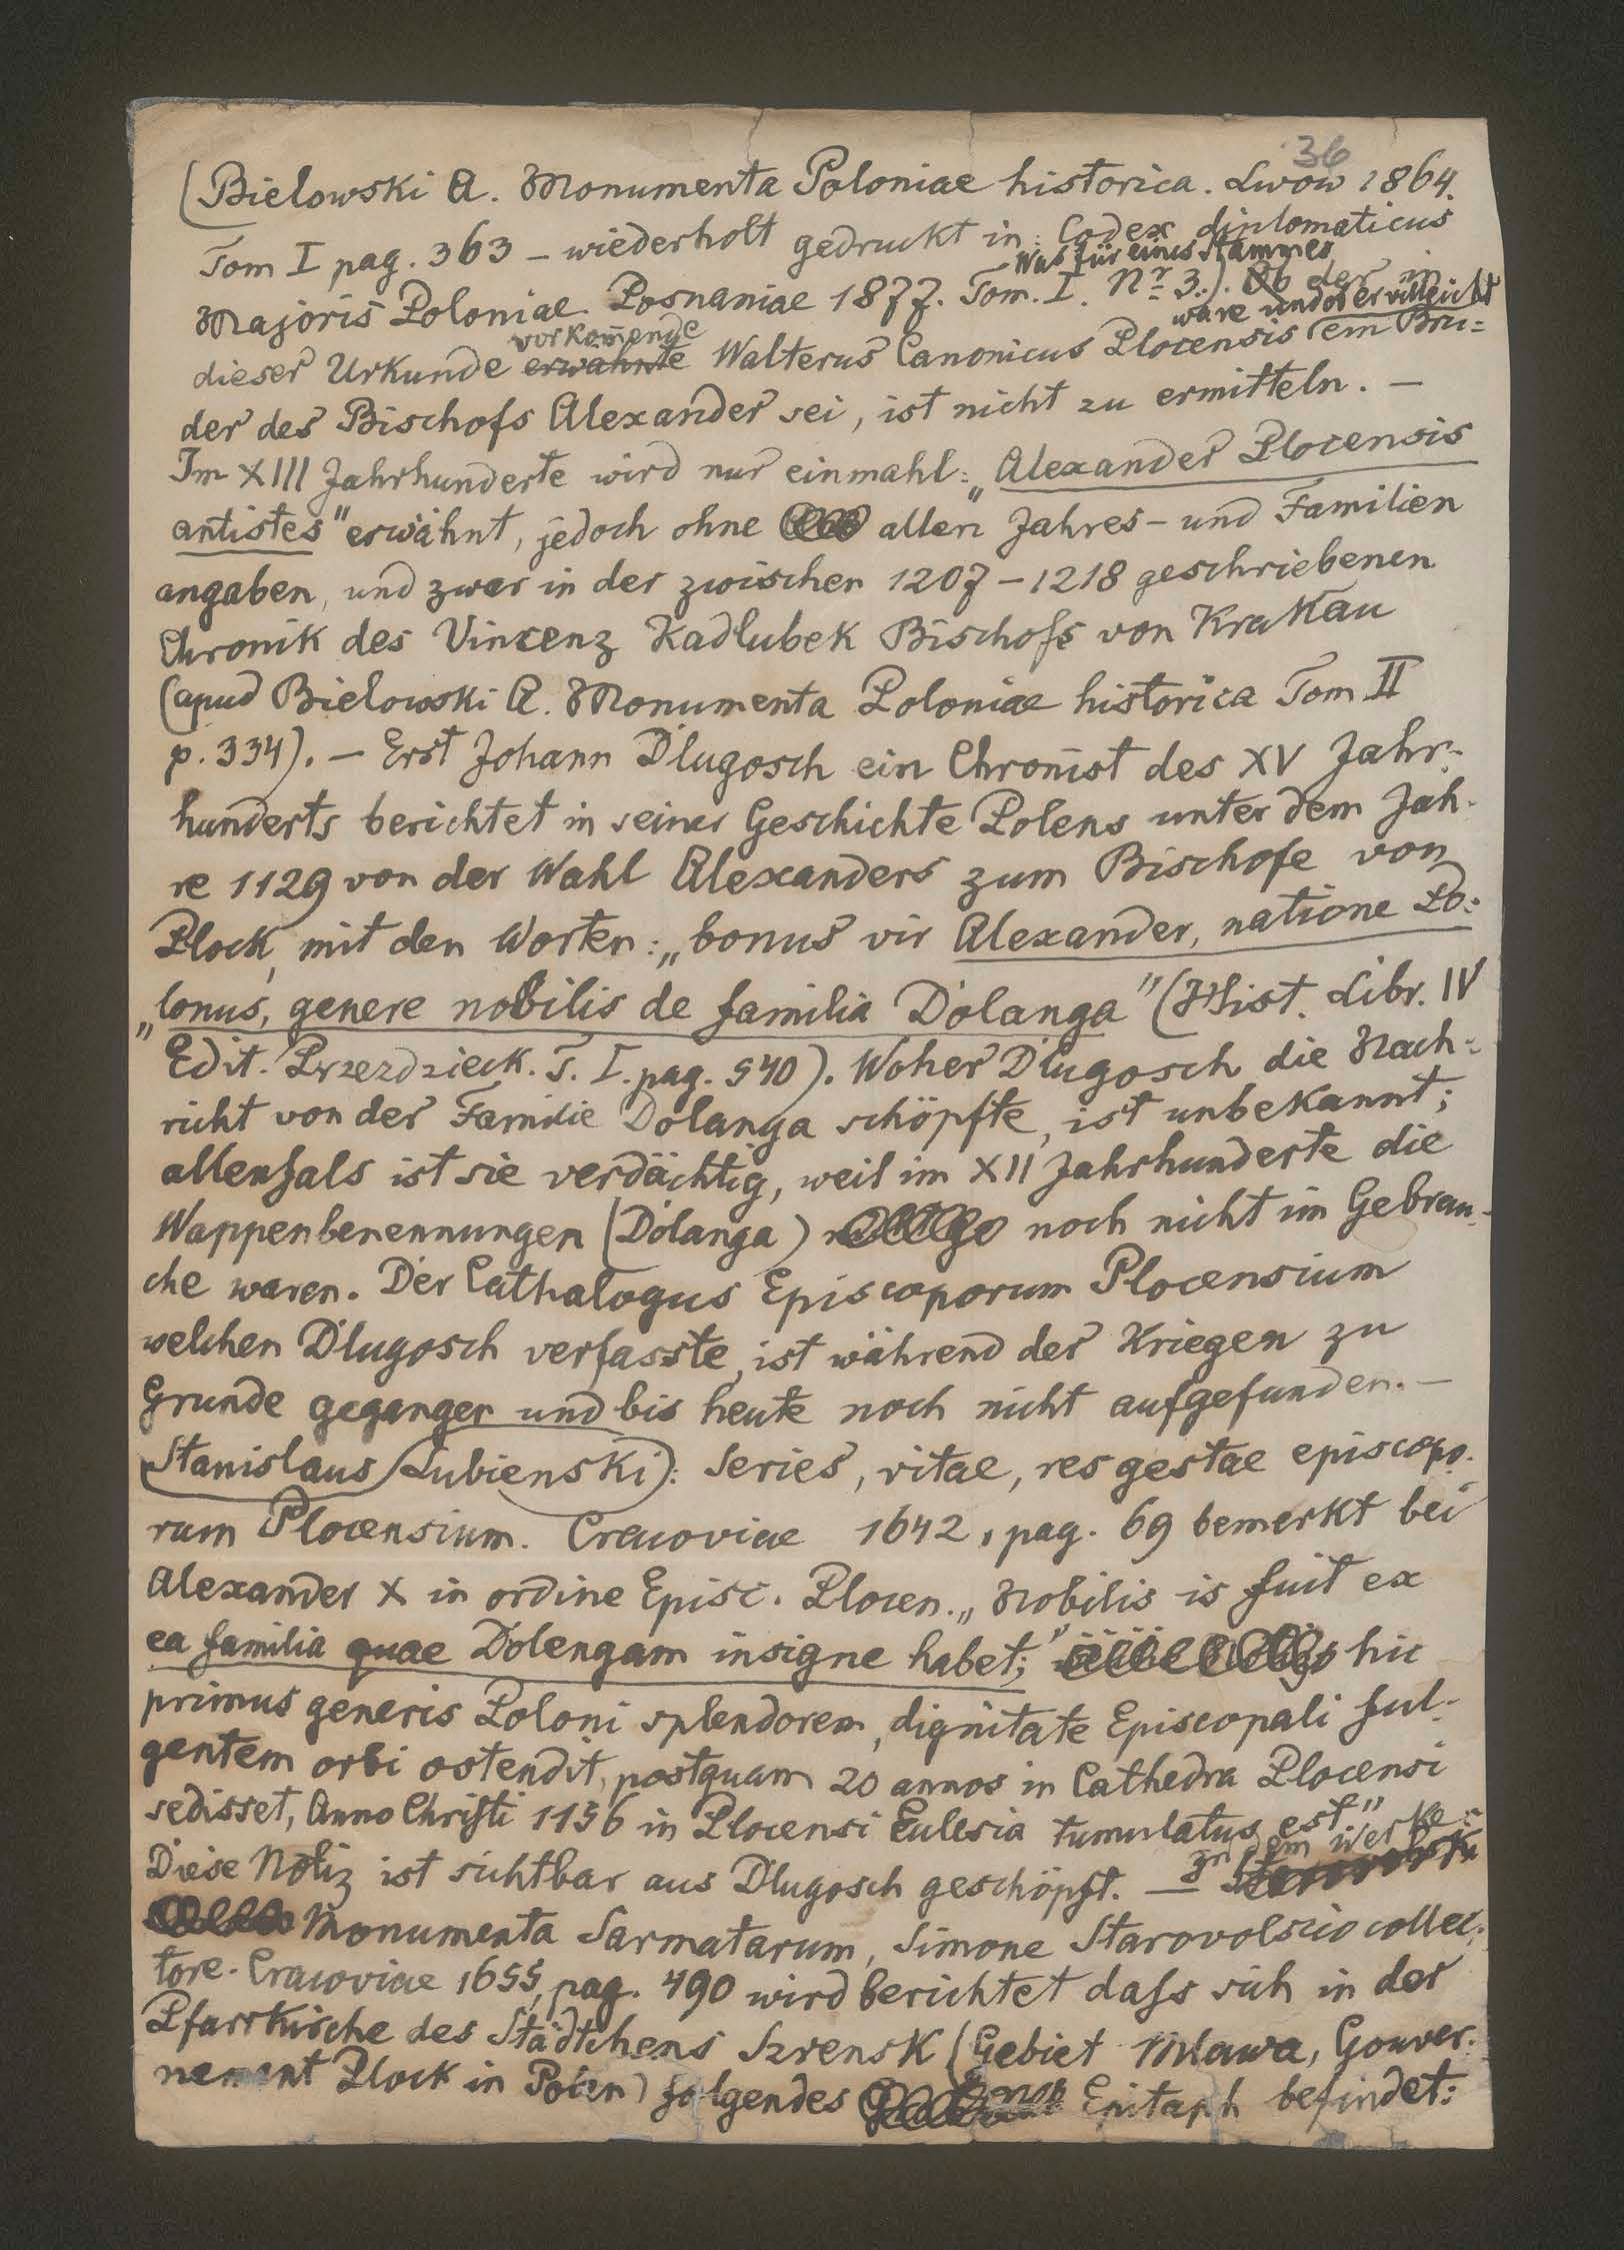 36
(Bielowski A. Monumenta Poloniae historica. Lwow 1864.
Tom I pag. 363 – wiederholt gedruckt in: Codex diplomaticus
Was für eines Stammes
Majoris Poloniae. Posnaniae 1877. Tom. I. Nr 3.). Ob der in
vorkom̄ende wäre und ob er villeicht
dieser Urkunde erwähnte Walterus Canonicus Plocensis ein Bru=
der des Bischofs Alexander sei, ist nicht zu ermitteln. –
Im XIII Jahrhunderte wird nur einmahl: „Alexander Plocensis
antistes" erwähnt, jedoch ohne allen Jahres- und Familien
angaben, und zwar in der zwischen 1207–1218 geschriebenen
Chronik des Vincenz Kadlubek Bischofs von Krakau
(apud Bielowski A. Monumenta Poloniae historica Tom II
p. 334). – Erst Johann Dlugosch ein Chronist des XV Jahr-
hunderts berichtet in seiner Geschichte Polens unter dem Jah-
re 1129 von der Wahl Alexanders zum Bischofe von
Plock, mit den Worten: „bonus vir Alexander, natione Po=
„lonus, genere nobilis de familia Dolanga" (Hist. Libr. IV
Edit. Przezdzieck. T. I. pag. 540). Woher Dlugosch die Nach=
richt von der Familie Dolanga schöpfte, ist unbekannt;
allenfals ist sie verdächtig, weil im XII Jahrhunderte die
Wappenbenennungen (Dolanga) noch nicht im Gebrau-
che waren. Der Cathalogus Episcoporum Plocensium
welchen Dlugosch verfasste, ist während der Kriegen zu
Grunde gegangen und bis heute noch nicht aufgefunden. –
Stanislaus Lubienski): Series, vitae, res gestae episcopo-
rum Plocensium. Cracoviae 1642, pag. 69 bemerkt bei
Alexander X in ordine Episc. Plocen. „Nobilis is fuit ex
ea familia quae Dolengam insigne habet;" hic
primus generis Poloni splendorem, dignitate Episcopali ful-
gentem orbi ostendit, postquam 20 annos in Cathedra Plocensi
sedisset, Anno Christi 1156 in Plocensi Eulesia tumulatus est"
In dem Werke:
Diese Notiz ist sichtbar aus Dlugosch geschöpft. –
Monumenta Sarmatarum, Simone Starovolscio collec-
tore. Cracoviae 1655, pag. 490 wird berichtet dass sich in der
Pfarrkirche des Städtchens Szrensk (Gebiet Mlawa, Gouver-
nement Plock in Polen) folgendes Epitaph befindet: